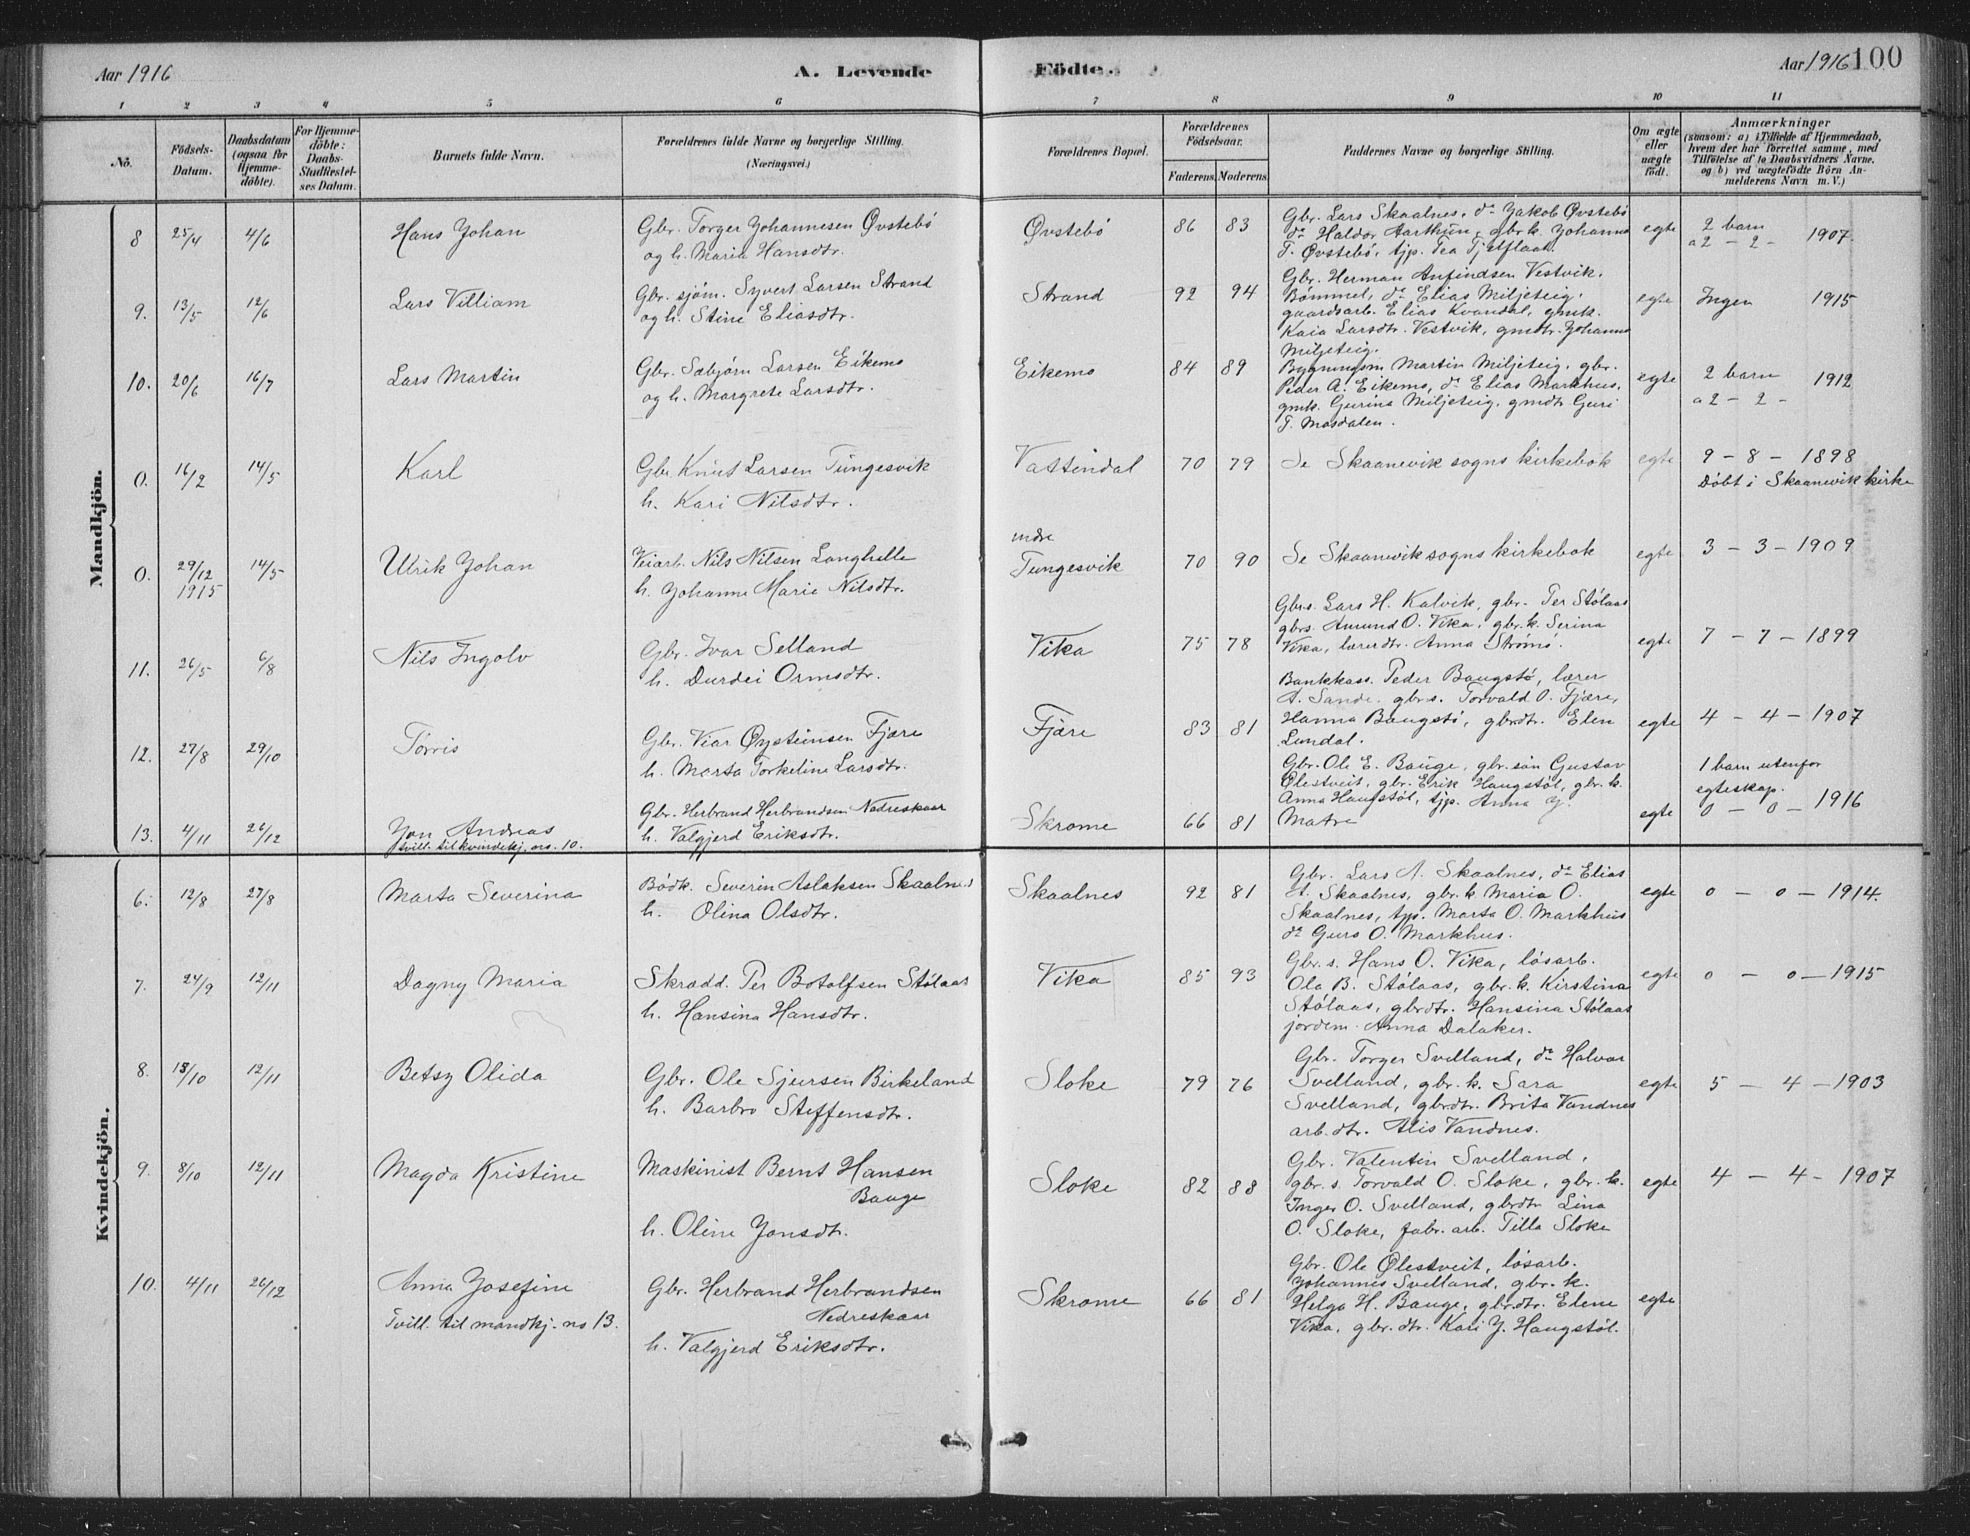 Aar 1916
A. Levende
Födte.
Aar 1916
100
1 2 3 4 5 6 7 8 9 10 11
No.
Födsels-
Datum.
Daabsdatum
(ogsaa for
Hjemme-
döbte).
For Hjemme-
döbte:
Daabs-
Stadfæstel-
ses Datum.
Barnets fulde Navn.
Forældrenes fulde Navne og borgerlige Stilling.
(Næringsvei.)
Forældrenes Bopæl.
Forældrenes
Födselsaar.
Faderens.
Moderens.
Faddernes Navne og borgerlige Stilling.
Om ægte
eller
uægte
födt.
Anmærkninger
(saasom: a) i Tilfælde af Hjemmedaab,
hvem der har forrettet samme, med
Tilföielse af to Daabsvidners Navne,
og b) ved uægtefödte Börn An-
melderens Navn m. V.)
Mandkjön.
8 25/4 4/6
Hans Johan
Gbr. Torger Johannesen Øvstebö
og h. Maria Hansdtr.
Øvstebö
86 83
Gbr. Lars Skaalnes, do Jakob Øvstebö
do Haldor Aarthun, gbr.k. Johanna
T. Øvstebö, tjp. Tea Tjelflaat.
egte
2 barn
a 2 - 2 - 1907.
9. 13/5 12/6
Lars Villiam
Gbr. sjöm. Syvert Larsen Strand
og h. Stine Eliasdtr.
Strand
92 94
Gbr. Herman Anfindsen Vestvik,
Bömmel, do Elias Miljeteig,
gaardsarb. Elias Kvandal, gmk.
Kaia Larsdtr. Vestvik, gmdtr. Johanna
Miljeteig.
egte
Ingen 1915
10. 20/6 16/7
Lars Martin
Gbr. Sæbjörn Larsen Eikemo
og h. Margrete Larsdtr.
Eikemo
84 89
Bygningsm Martin Miljeteig, gbr.
Peder A. Eikemo, do Elias Markhus,
gmk. Gurina Miljeteig, gmdtr Guri
T. Mosdalen.
egte
2 barn 1912
a 2 - 2 -
0. 16/2 14/5
Karl
Gbr Knut Larsen Tungesvik
h. Kari Nilsdtr.
Vattendal
70 79
Se Skaanevik sogns kirkebok
egte
9 - 8 - 1898
Döbt i Skaanevik kirke
0. 29/12
1915
14/5
Ulrik Johan
Veiarb. Nils Nilsen Langhelle
h. Johanne Marie Nilsdtr.
indre
Tungesvik
70 90
Se Skaanevik sogns kirkebok
egte
3 - 3 - 1909
11. 26/5 6/8
Nils Ingolv
Gbr. Ivar Selland
h. Durdei Ormsdtr.
Vika
75 78
Gbrs. Lars H. Kalvik, gbr. Per Stölaas
gbrs. Amund O. Vika, gbr.k. Serina
Vika, lærerdtr. Anna Strömö.
egte
7 - 7 - 1899
12. 27/8 29/10
Törris
Gbr. Viar Øysteinsen Fjære
h. Marta Torkeline Larsdtr.
Fjære
83 81
Bankkass. Peder Baugstö, lærer
A. Sande, gbr.s. Torvald O. Fjære,
Hanna Baugstö, gbrdtr. Elen
Lundal.
egte
4 - 4 - 1907
13. 4/11 26/12
Jon Andreas
Tvill. til kvindekj. no. 10.
Gbr. Herbrand Herbrandsen Nedreskaar
h. Valgjerd Eriksdtr.
Skrome
66 81
Gbr. Ole E. Bauge, gbr.sön Gustav
Ølestveit, gbr. Erik Haugstöl, gbr.k.
Anna Haugstöl, tjp. Anna
Matre
egte
1 barn utenfor
egteskap.
0 - 0 - 1916
Kvindekjön.
6. 12/8 27/8
Marta Severina
Bödk. Severin Aslaksen Skaalnes
h. Olina Olsdtr.
Skaalnes
92 81
Gbr. Lars A. Skaalnes, do Elias
A. Skaalnes, gbr.k. Maria O.
Skaalnes, tjp. Marta O. Markhus
do Guro O. Markhus.
egte
0 - 0 - 1914.
7. 24/9 12/11
Dagny Maria
Skradd. Per Botolfsen Stölaas
h. Hansina Hansdtr.
Vika
85 93
Gbr.s. Hans O. Vika, lösarb.
Ola B. Stölaas, gbr.k. Kirstina
Stölaas, gbrdtr. Hansina Stölaas
jordem. Anna Dalaker.
egte
0 - 0 - 1915
8. 13/10 12/11
Betsy Olida
Gbr. Ole Sjursen Birkeland
h. Barbro Steffensdtr.
Sloke
79 76
Gbr. Torger Svelland, do Halvar
Svelland, gbr.k. Sara
Svelland, gbrdtr. Brita Vandnes
arb.dtr. Alis Vandnes.
egte
5 - 4 - 1903
9. 8/10 12/11
Magda Kristine
Maskinist Bernt Hansen
Bauge
h. Oline Jonsdtr.
Sloke
82 88
Gbr. Valentin Svelland,
gbr.s. Torvald O. Sloke, gbr.k.
Inger O. Svelland, gbrdtr Lina
O. Sloke, fabr.arb. Tilla Sloke
egte
4 - 4 - 1907
10. 4/11 26/12
Anna Josefine
Tvill. til mandkj. no 13.
Gbr. Herbrand Herbrandsen
Nedreskaar
h. Valgjerd Eriksdtr.
Skrome
66 81
Gbr. Ole Ølestveit, lösarb.
Johannes Svelland, gbr.k.
Helga H. Bauge, gbrdtr. Elene
Vika, gbr.dtr. Kari J. Haugstöl.
egte